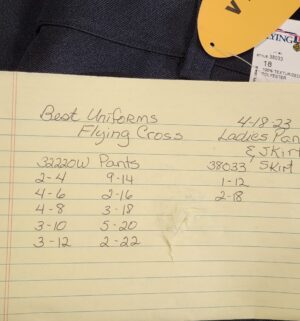 V
LYING
STYLE 38033
18
100% TEXTURIZED
POLYESTER
Best Uniforms 4-18-23
Flying Cross Ladies Pan
& Skirt
32220W Pants 38033 Skirt
2-4 9-14 1-12
4-6 2-16 2-18
4-8 3-18
3-10 5-20
3-12 2-22